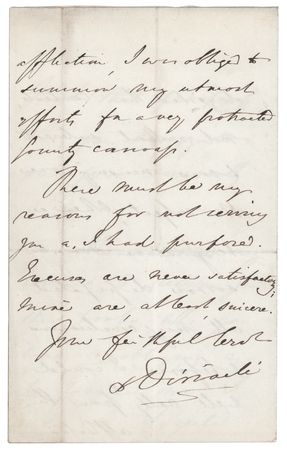 affliction, I was obliged to
summon my utmost
efforts for a very protracted
County canvass.
There must be my
reasons for not serving
you as I had purposed.
Excuses are never satisfactory;
mine are, at least, sincere.
Your faithful Servt
Disraeli